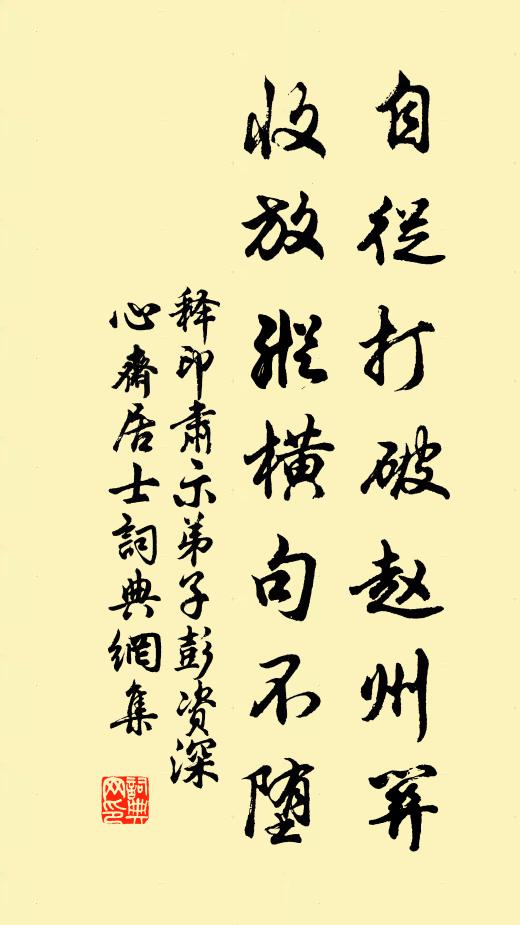 自從打破赵州關
收放縱橫句不堕
释印肅示弟子彭资深
心齋居士詞典網集
詞典
网印